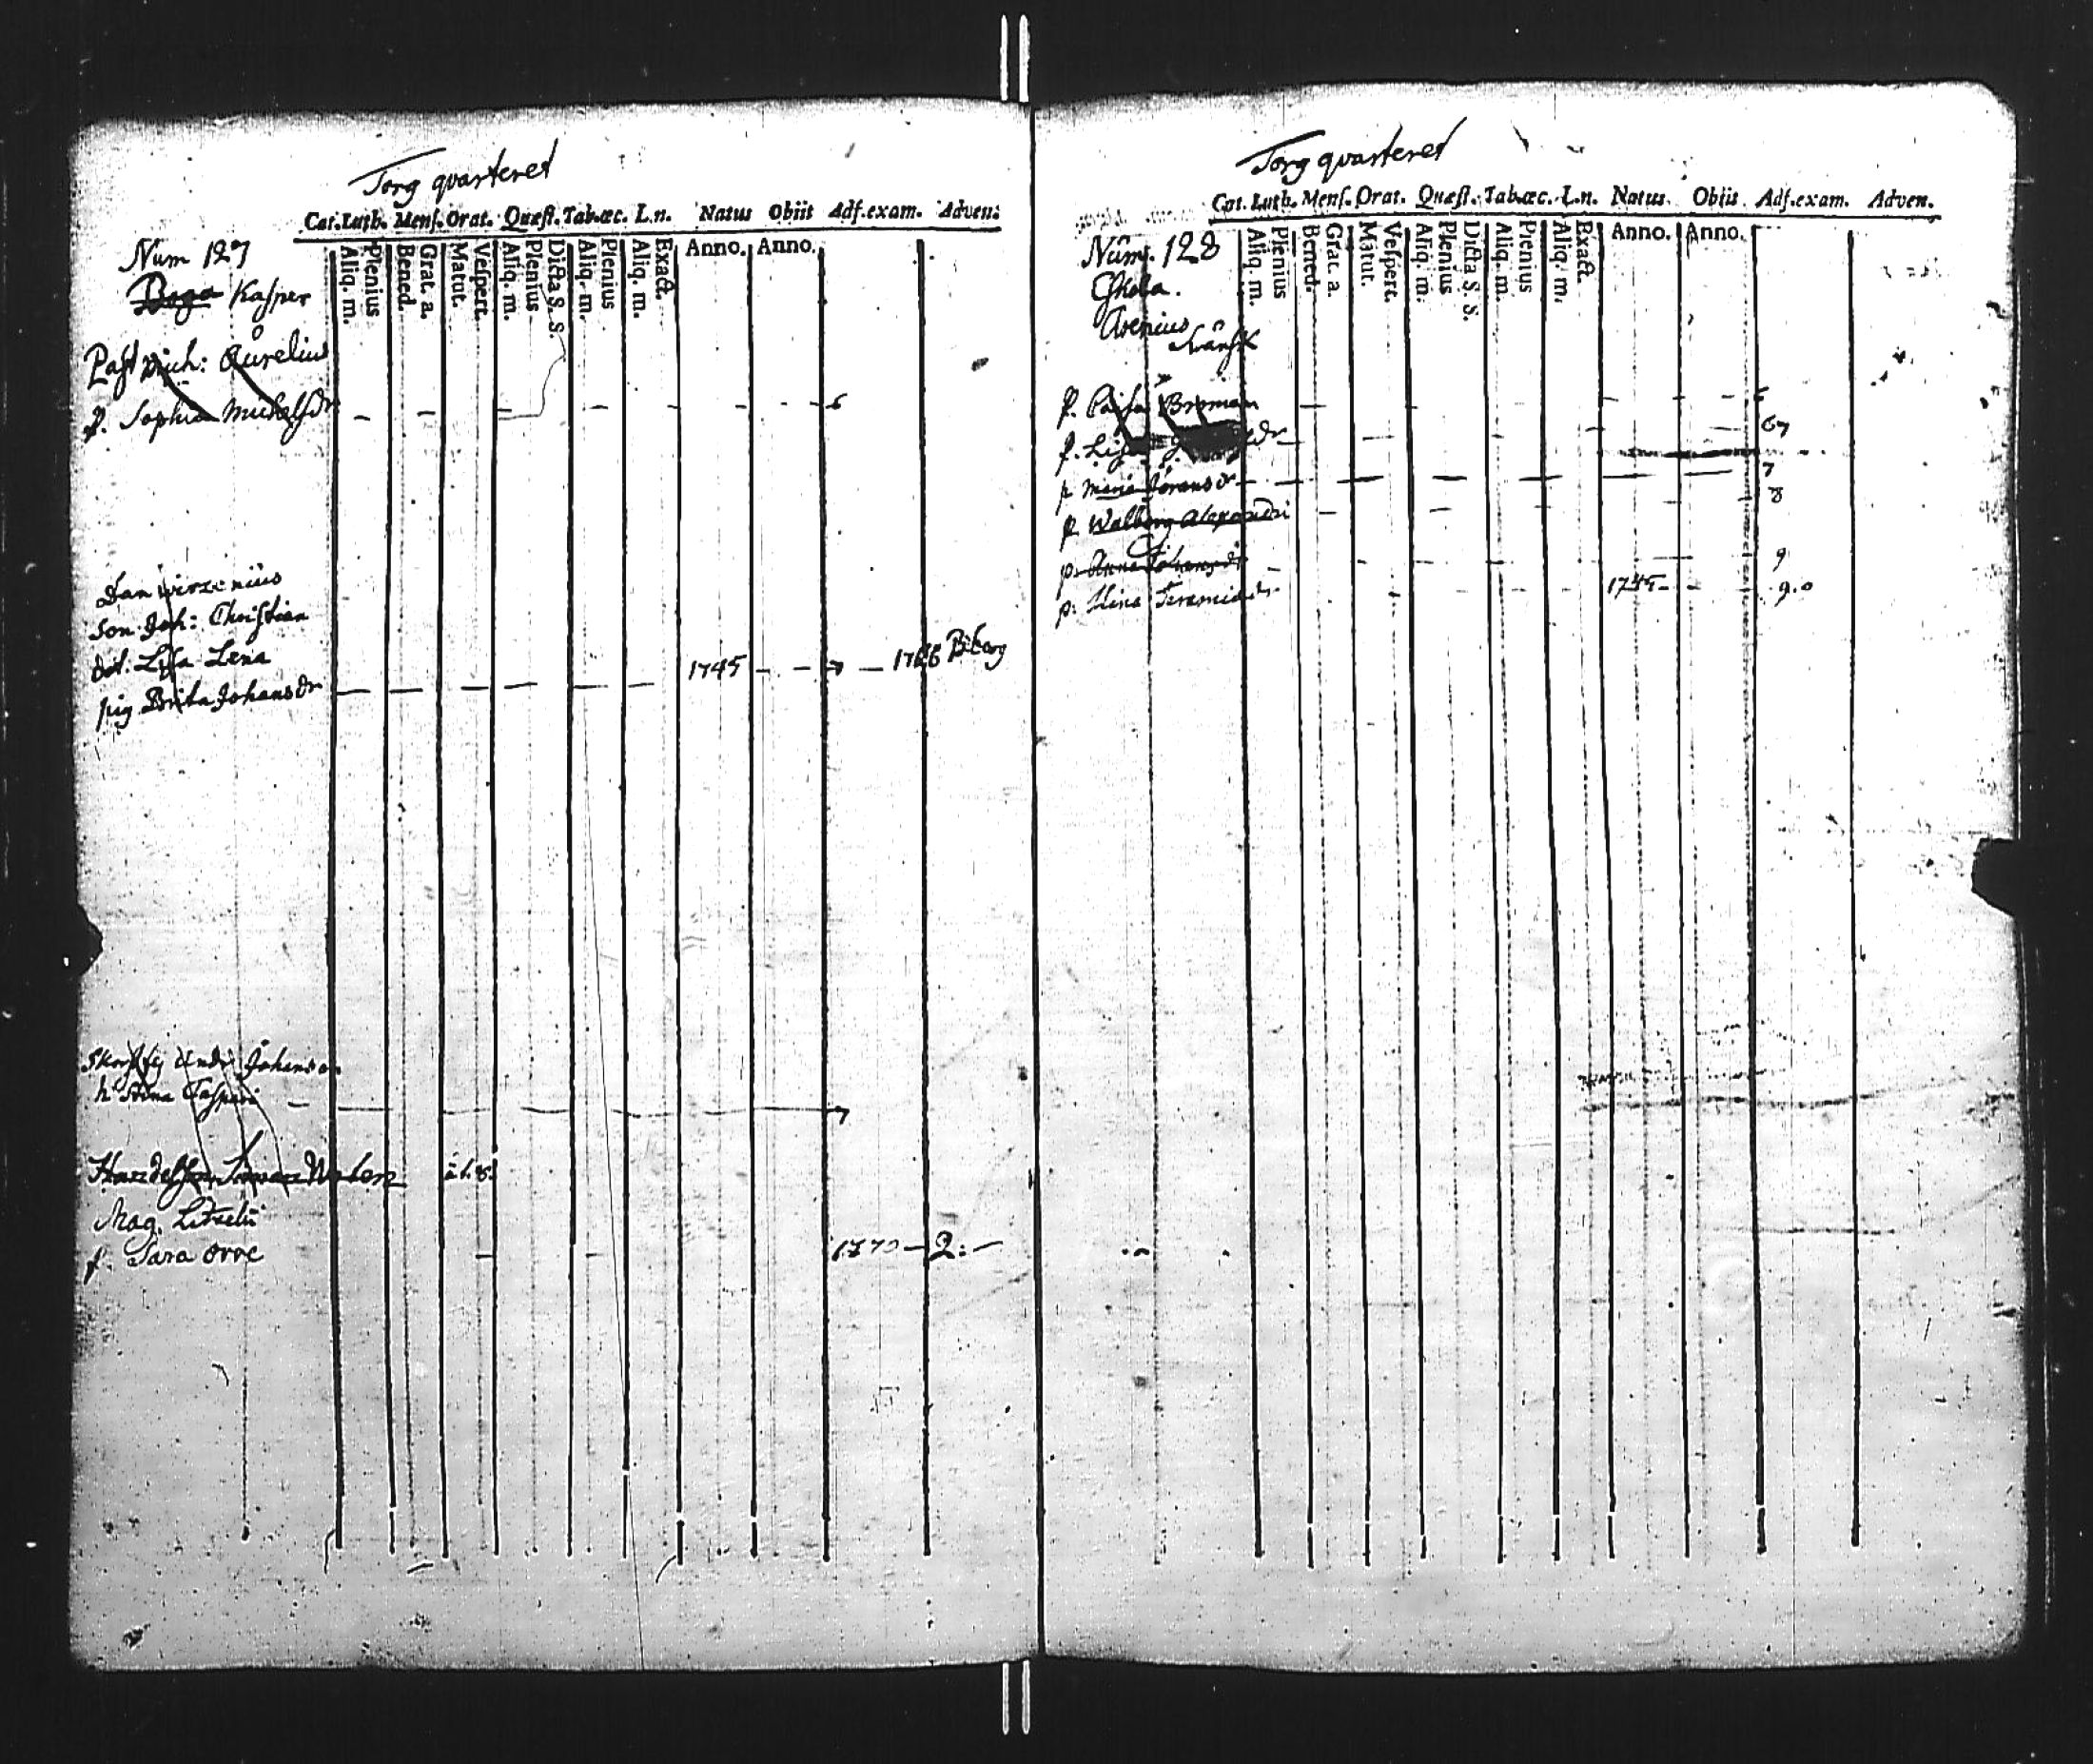 Torg quarteret
Cat. Luth. Mens. Orat. Quæst. Tab. œc. L.n. Natus Obiit Adf. exam. Adven:
Aliq. m. Plenius Bened. Grat. a. Matut. Vespert. Aliq. m. Plenius Dicta S. S. Aliq. m. Plenius Aliq. m. Exact. Anno. Anno.
Num 127
Kasper
Past Mich: Aurelius
p. Sophia Michelsdr 6
Dan wirzenius
Son Joh: Christian
dot. Lisa Lena
pig Brita Johansdr 1745 7 1766 B:borg
Andr Johanson
h Stina Caspari 7
Mag.
p. Sara Orre 1770 - 2: -
Torg quarteret
Cat. Luth. Mens. Orat. Quæst. Tab. œc. L.n. Natus Obiit Adf. exam. Adven.
Aliq. m. Plenius Bened. Grat. a. Matut. Vespert. Aliq. m. Plenius Dicta S. S. Aliq. m. Plenius Aliq. m. Exact. Anno. Anno.
Num. 128
Skola.
Arenius
p. Broman 6
p. Lisa dr 67
p Maria Göransdr 7
p Walborg Alexandri 8
p. Anna Johansdr 9
p. Stina 1745 9.0